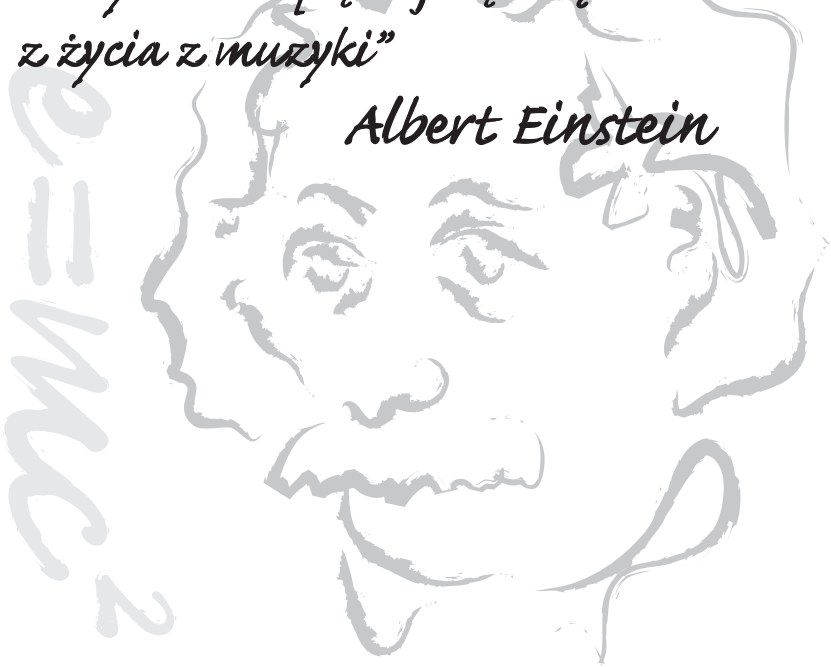 z życia z muzyki”
Albert Einstein
e=mc²